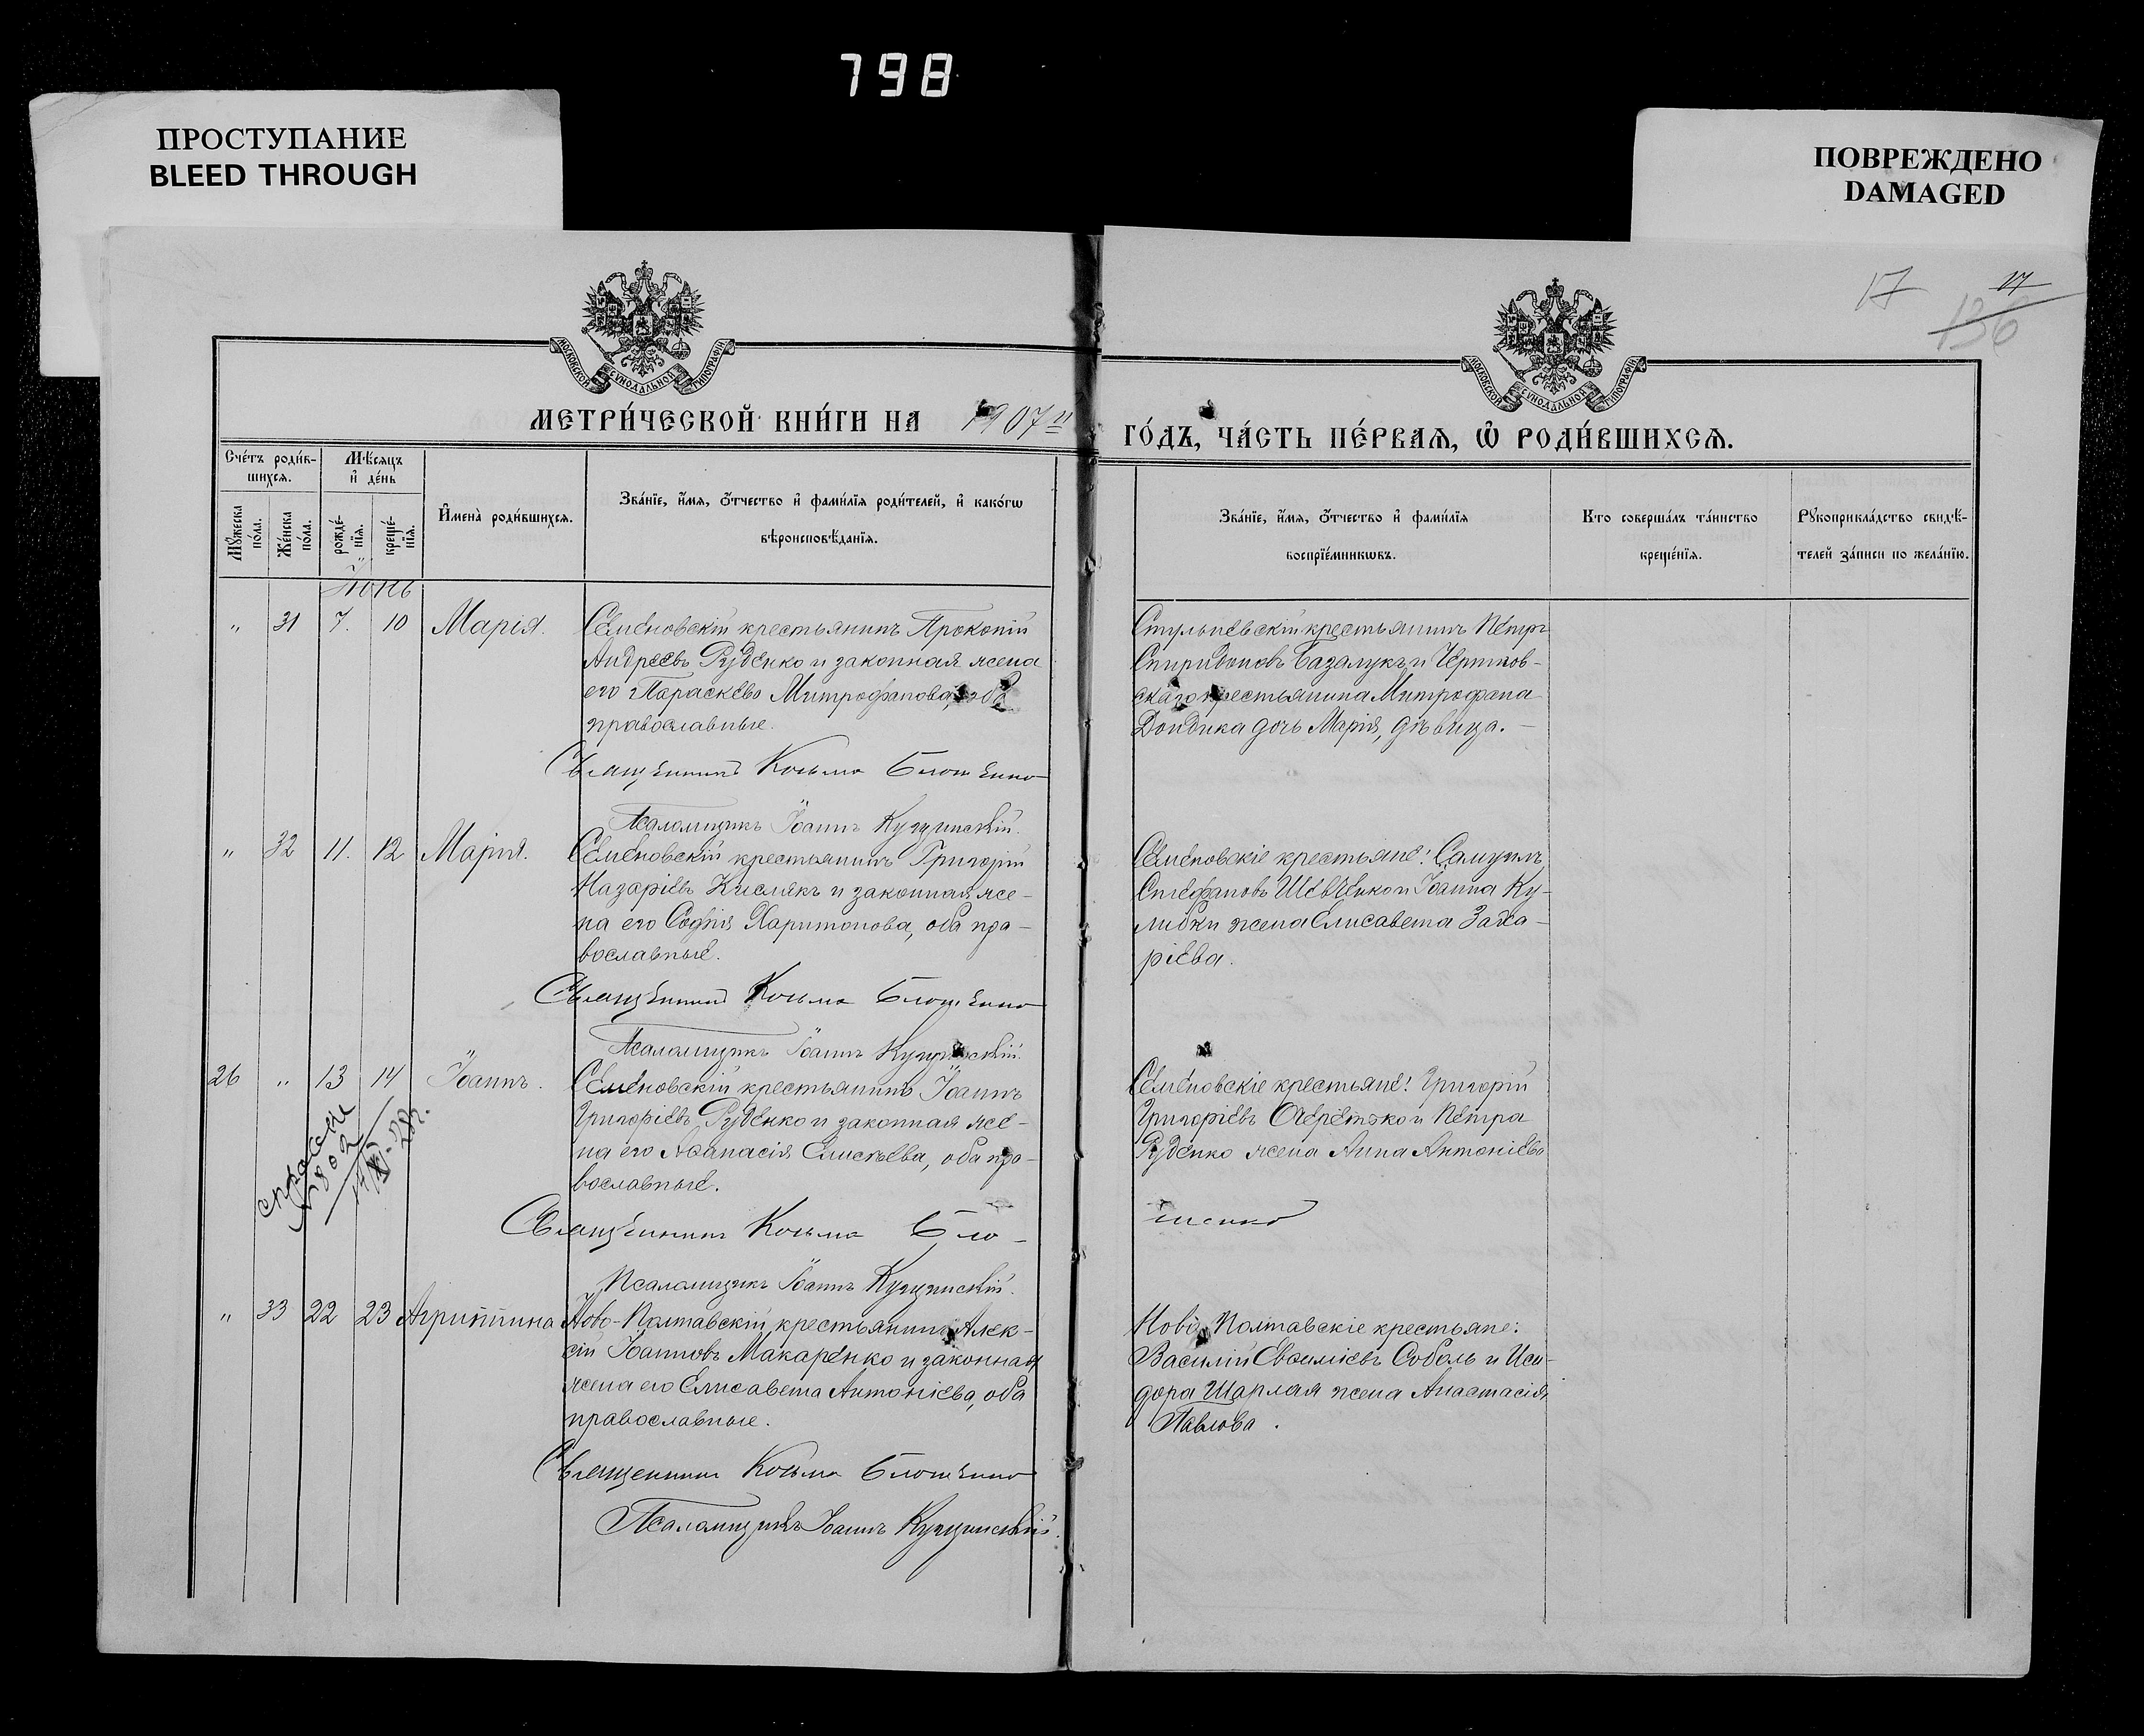 798
ПРОСТУПАНИЕ
BLEED THROUGH
ПОВРЕЖДЕНО
DAMAGED
17
17
136
МОСКОВСКОЙ СѴНОДАЛЬНОЙ ТИПОГРАФІИ
МОСКОВСКОЙ СѴНОДАЛЬНОЙ ТИПОГРАФІИ
МЕТРИ́ЧЕСКОЙ КНИ́ГИ НА 1907
ГО́ДЪ, ЧА́СТЬ ПЕ́РВАѦ, Ѡ҆ РОДИ́ВШИХСѦ.
Сче́тъ роди́в-
шихсѧ.
Мѣ́сѧцъ
и҆ де́нь
Мꙋ́жеска
по́ла.
Же́нска
по́ла.
рожде́-
нїѧ.
креще́-
нїѧ.
И҆мена̀ роди́вшихсѧ.
Зва́нїе, и҆́мѧ, ѻ҆́тчество и҆ фами́лїѧ роди́телей, и҆ како́гѡ
вѣроисповѣ́данїѧ.
Зва́нїе, и҆́мѧ, ѻ҆́тчество и҆ фами́лїѧ
воспрїе́мникѡвъ.
Кто̀ соверша́лъ та́инство
креще́нїѧ.
Рꙋкоприкла́дство свидѣ́-
телей за́писи по жела́нїю.
Іюнь
" 31 7. 10 Марія.
Семеновскій крестьянинъ Прокопій
Андреевъ Руденко и законная жена
его Параскева Митрофанова, оба
православные.
Священникъ Косьма
Псаломщикъ Іоаннъ
Стульневскій крестьянинъ Петръ
Спиридоновъ Базалукъ и Чернигов-
скаго крестьянина Митрофана
Дондика дочь Марія, дѣвица.
" 32 11. 12 Марія.
Семеновскій крестьянинъ Григорій
Назаріевъ Кислякъ и законная же-
на его Софія Харитонова, оба пра-
вославные.
Священникъ Косьма
Псаломщикъ Іоаннъ
Семеновскіе крестьяне: Самуилъ
Стефановъ Шевченко и Іоанна Ку-
либки жена Елисавета Заха-
ріева.
26 " 13 14 Іоаннъ.
Семеновскій крестьянинъ Іоаннъ
Григоріевъ Руденко и законная же-
на его Аѳанасія Елисѣева, оба пра-
вославные.
Священникъ Косьма
Псаломщикъ Іоаннъ
Семеновскіе крестьяне: Григорій
Григоріевъ Очеретько и Петра
Руденко жена Анна Антоніева
" 33 22 23 Агриппина
Ново-Полтавскій крестьянинъ Алек-
сій Іоанновъ Макаренко и законная
жена его Елисавета Антоніева, оба
православные.
Священникъ Косьма
Псаломщикъ Іоаннъ
Ново-Полтавскіе крестьяне:
Василій Евѳиміевъ Соболь и Иси-
дора Шарлая жена Анастасія
Павлова.